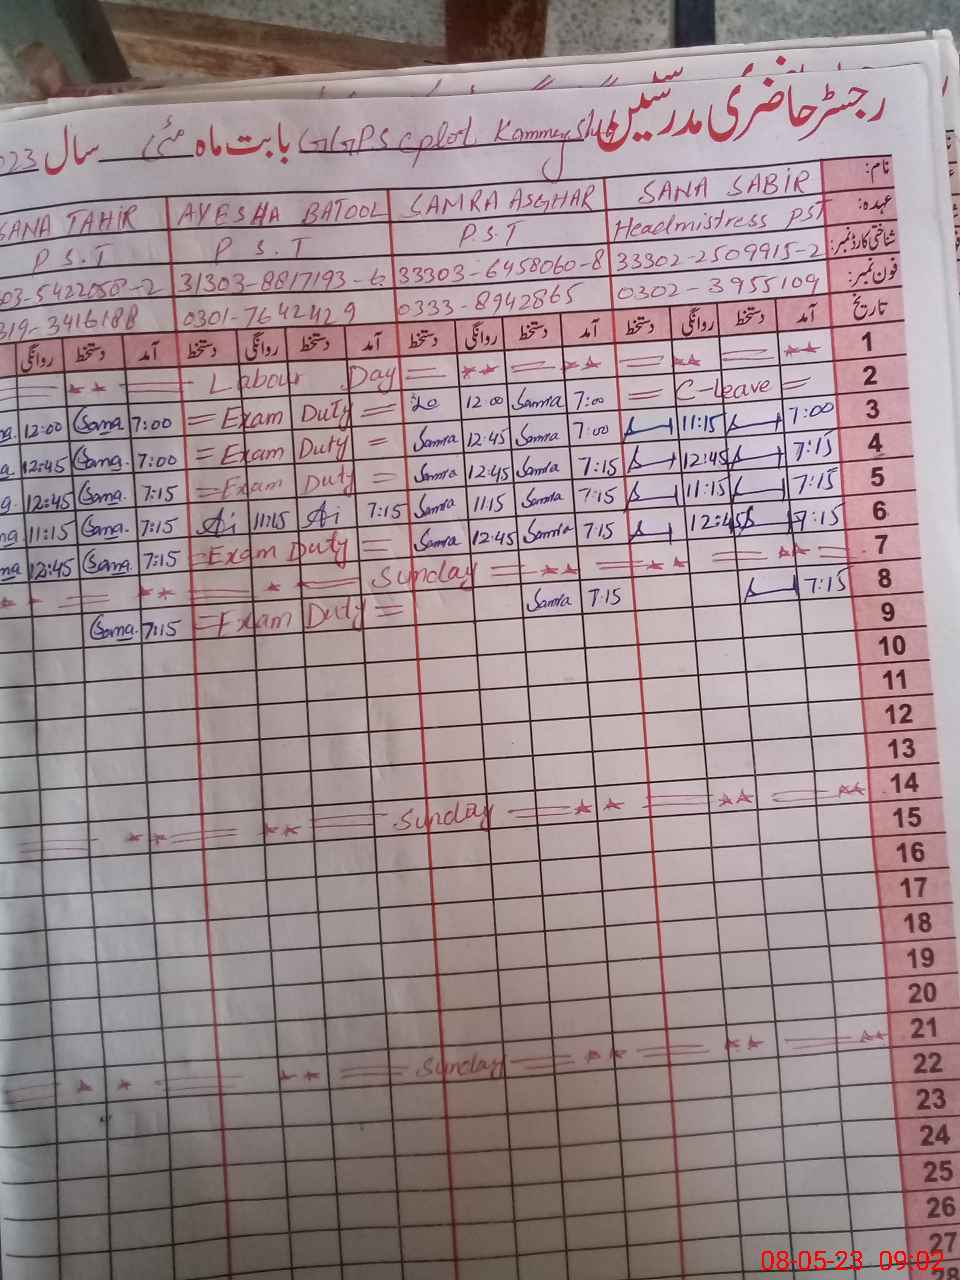 رجسٹر حاضری مدرسین GGPS بابت ماہ مئی سال 2023
نام: SANA SABIR SAMRA ASGHAR AYESHA BATOOL SANA TAHIR
عہدہ: Headmistress PST P.S.T P S.T P S.T
شناختی کارڈ نمبر: 33302-2509915-2 33303-6458060-8 31303-8817193-6
فون نمبر: 0302-3955109 0333-8942865 0301-7642429 319-3416188
تاریخ آمد دستخط روانگی دستخط آمد دستخط روانگی دستخط آمد دستخط روانگی دستخط آمد دستخط روانگی
1 Labour Day
2 = C-leave = 7:00 Samra 12:00 = Exam Duty = 7:00 Sana. 12:00
3 7:00 11:15 7:00 Samra 12:45 Samra = Exam Duty = 7:00 Sana. 12:45
4 7:15 12:45 7:15 Samra 12:45 Samra = Exam Duty = 7:15 Sana. 12:45
5 7:15 11:15 7:15 Samra 11:15 Samra 7:15 Ai 11:15 Ai 7:15 Sana. 11:15
6 7:15 12:45 7:15 Samra 12:45 Samra = Exam Duty = 7:15 Sana. 12:45
7 Sunday
8 7:15 7:15 Samra = Exam Duty = 7:15 Sana.
9
10
11
12
13
14 Sunday
15
16
17
18
19
20
21 Sunday
22
23
24
25
26
27
28
08-05-23 09:02